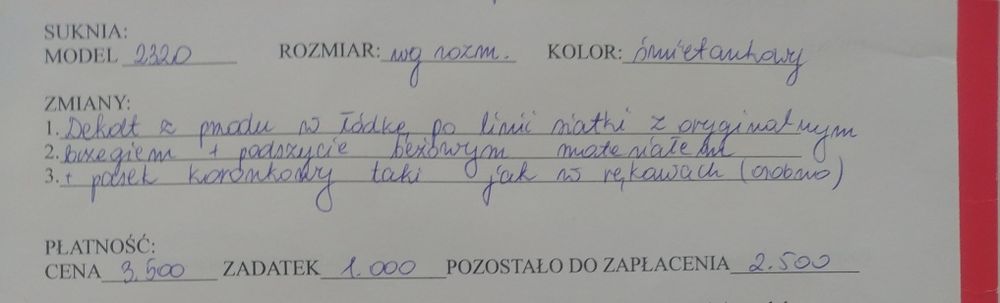 SUKNIA:
MODEL 2320 ROZMIAR: wg rozm. KOLOR: śmietankowy
ZMIANY:
1. Dekolt z przodu w łódkę po linii siatki z oryginalnym
2. brzegiem + podszycie beżowym materiałem
3. + pasek koronkowy taki jak w rękawach (osobno)
PŁATNOŚĆ:
CENA 3.500 ZADATEK 1.000 POZOSTAŁO DO ZAPŁACENIA 2.500